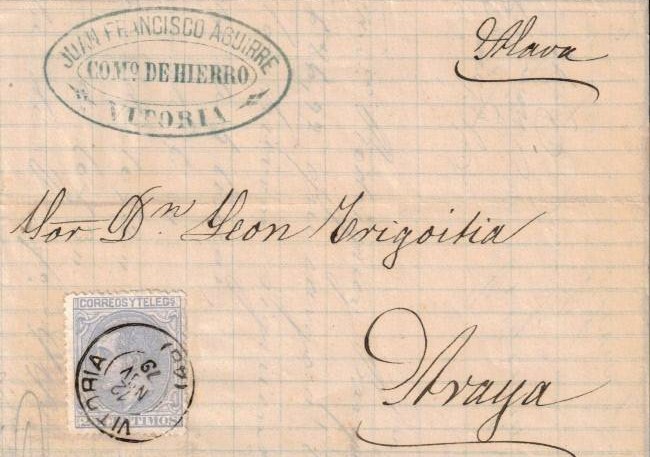 JUAN FRANCISCO AGUIRRE
COMº. DE HIERRO
VITORIA
Alava
Sor Dn. Leon Trigoitia
CORREOS Y TELEGS
VITORIA
12
79
TIMOS
Araya